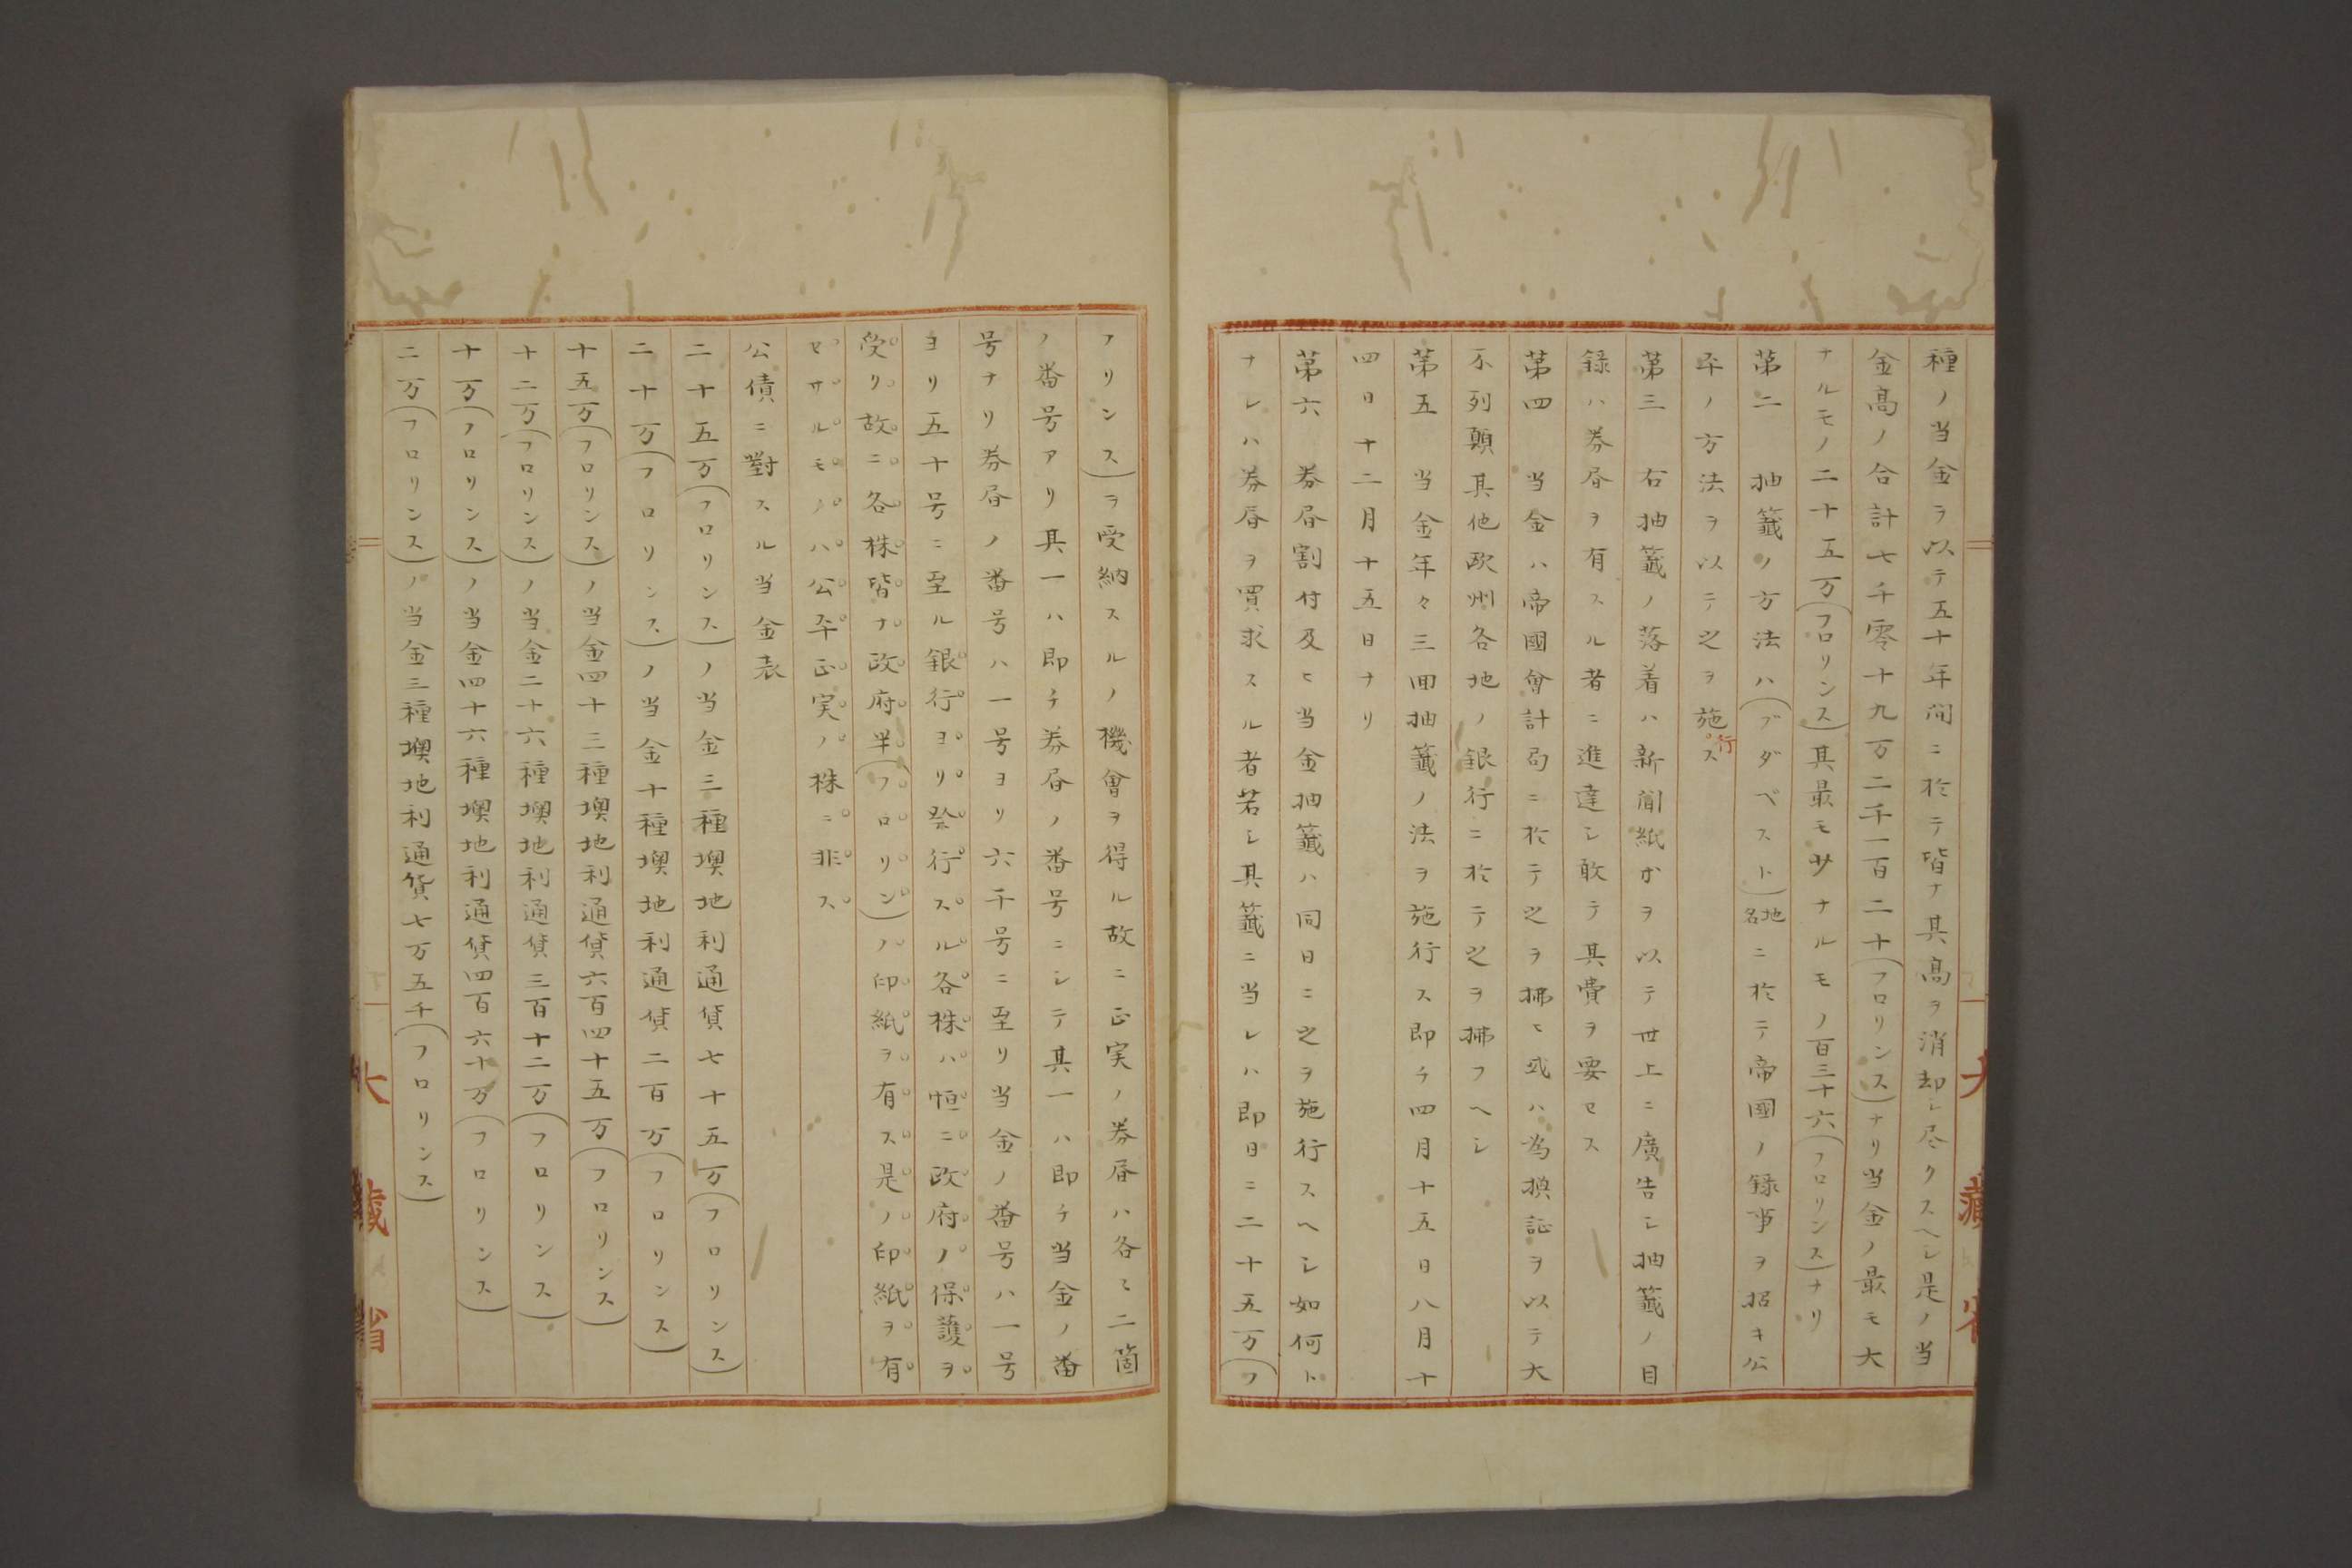 種ノ当金ヲ以テ五十年間ニ於テ皆ナ其高ヲ消却シ尽クスヘシ是ノ当
金高ノ合計七千零十九万二千一百二十(フロリンス)ナリ当金ノ最モ大
ナルモノ二十五万(フロリンス)其最モ少ナルモノ百三十六(フロリンス)ナリ
第二 抽籤ノ方法ハ(ブダペスト)地名ニ於テ帝國ノ録事ヲ招キ公
平ノ方法ヲ以テ之ヲ施行ス
第三 右抽籤ノ落着ハ新聞紙ヲ以テ世上ニ廣告シ抽籤ノ目
録ハ券昏ヲ有スル者ニ進達シ敢テ其費ヲ要セス
第四 当金ハ帝國會計局ニ於テ之ヲ拂ヒ或ハ為換証ヲ以テ大
不列顛其他欧州各地ノ銀行ニ於テ之ヲ拂フヘシ
第五 当金年々三回抽籤ノ法ヲ施行ス即チ四月十五日八月十
四日十二月十五日ナリ
第六 券昏割付及ヒ当金抽籤ハ同日ニ之ヲ施行スヘシ如何ト
ナレハ券昏ヲ買求スル者若シ其籤ニ当レハ即日ニ二十五万(フ
大藏省
フリンス)ヲ受納スルノ機會ヲ得ル故ニ正実ノ券昏ハ各〻二箇
ノ番号アリ其一ハ即チ券昏ノ番号ニシテ其一ハ即チ当金ノ番
号ナリ券昏ノ番号ハ一号ヨリ六千号ニ至リ当金ノ番号ハ一号
ヨリ五十号ニ至ル銀行ヨリ発行スル各株ハ恒ニ政府ノ保護ヲ
受リ故ニ各株皆ナ政府半(フロリン)ノ印紙ヲ有ス是ノ印紙ヲ有
セサルモノハ公平正実ノ株ニ非ス
公債ニ對スル当金表
二十五万(フロリンス)ノ当金三種墺地利通貨七十五万(フロリンス)
二十万(フロリンス)ノ当金十種墺地利通貨二百万(フロリンス)
十五万(フロリンス)ノ当金四十三種墺地利通貨六百四十五万(フロリンス)
十二万(フロリンス)ノ当金二十六種墺地利通貨三百十二万(フロリンス)
十万(フロリンス)ノ当金四十六種墺地利通貨四百六十万(フロリンス)
二万(フロリンス)ノ当金三種墺地利通貨七万五千(フロリンス)
大藏省